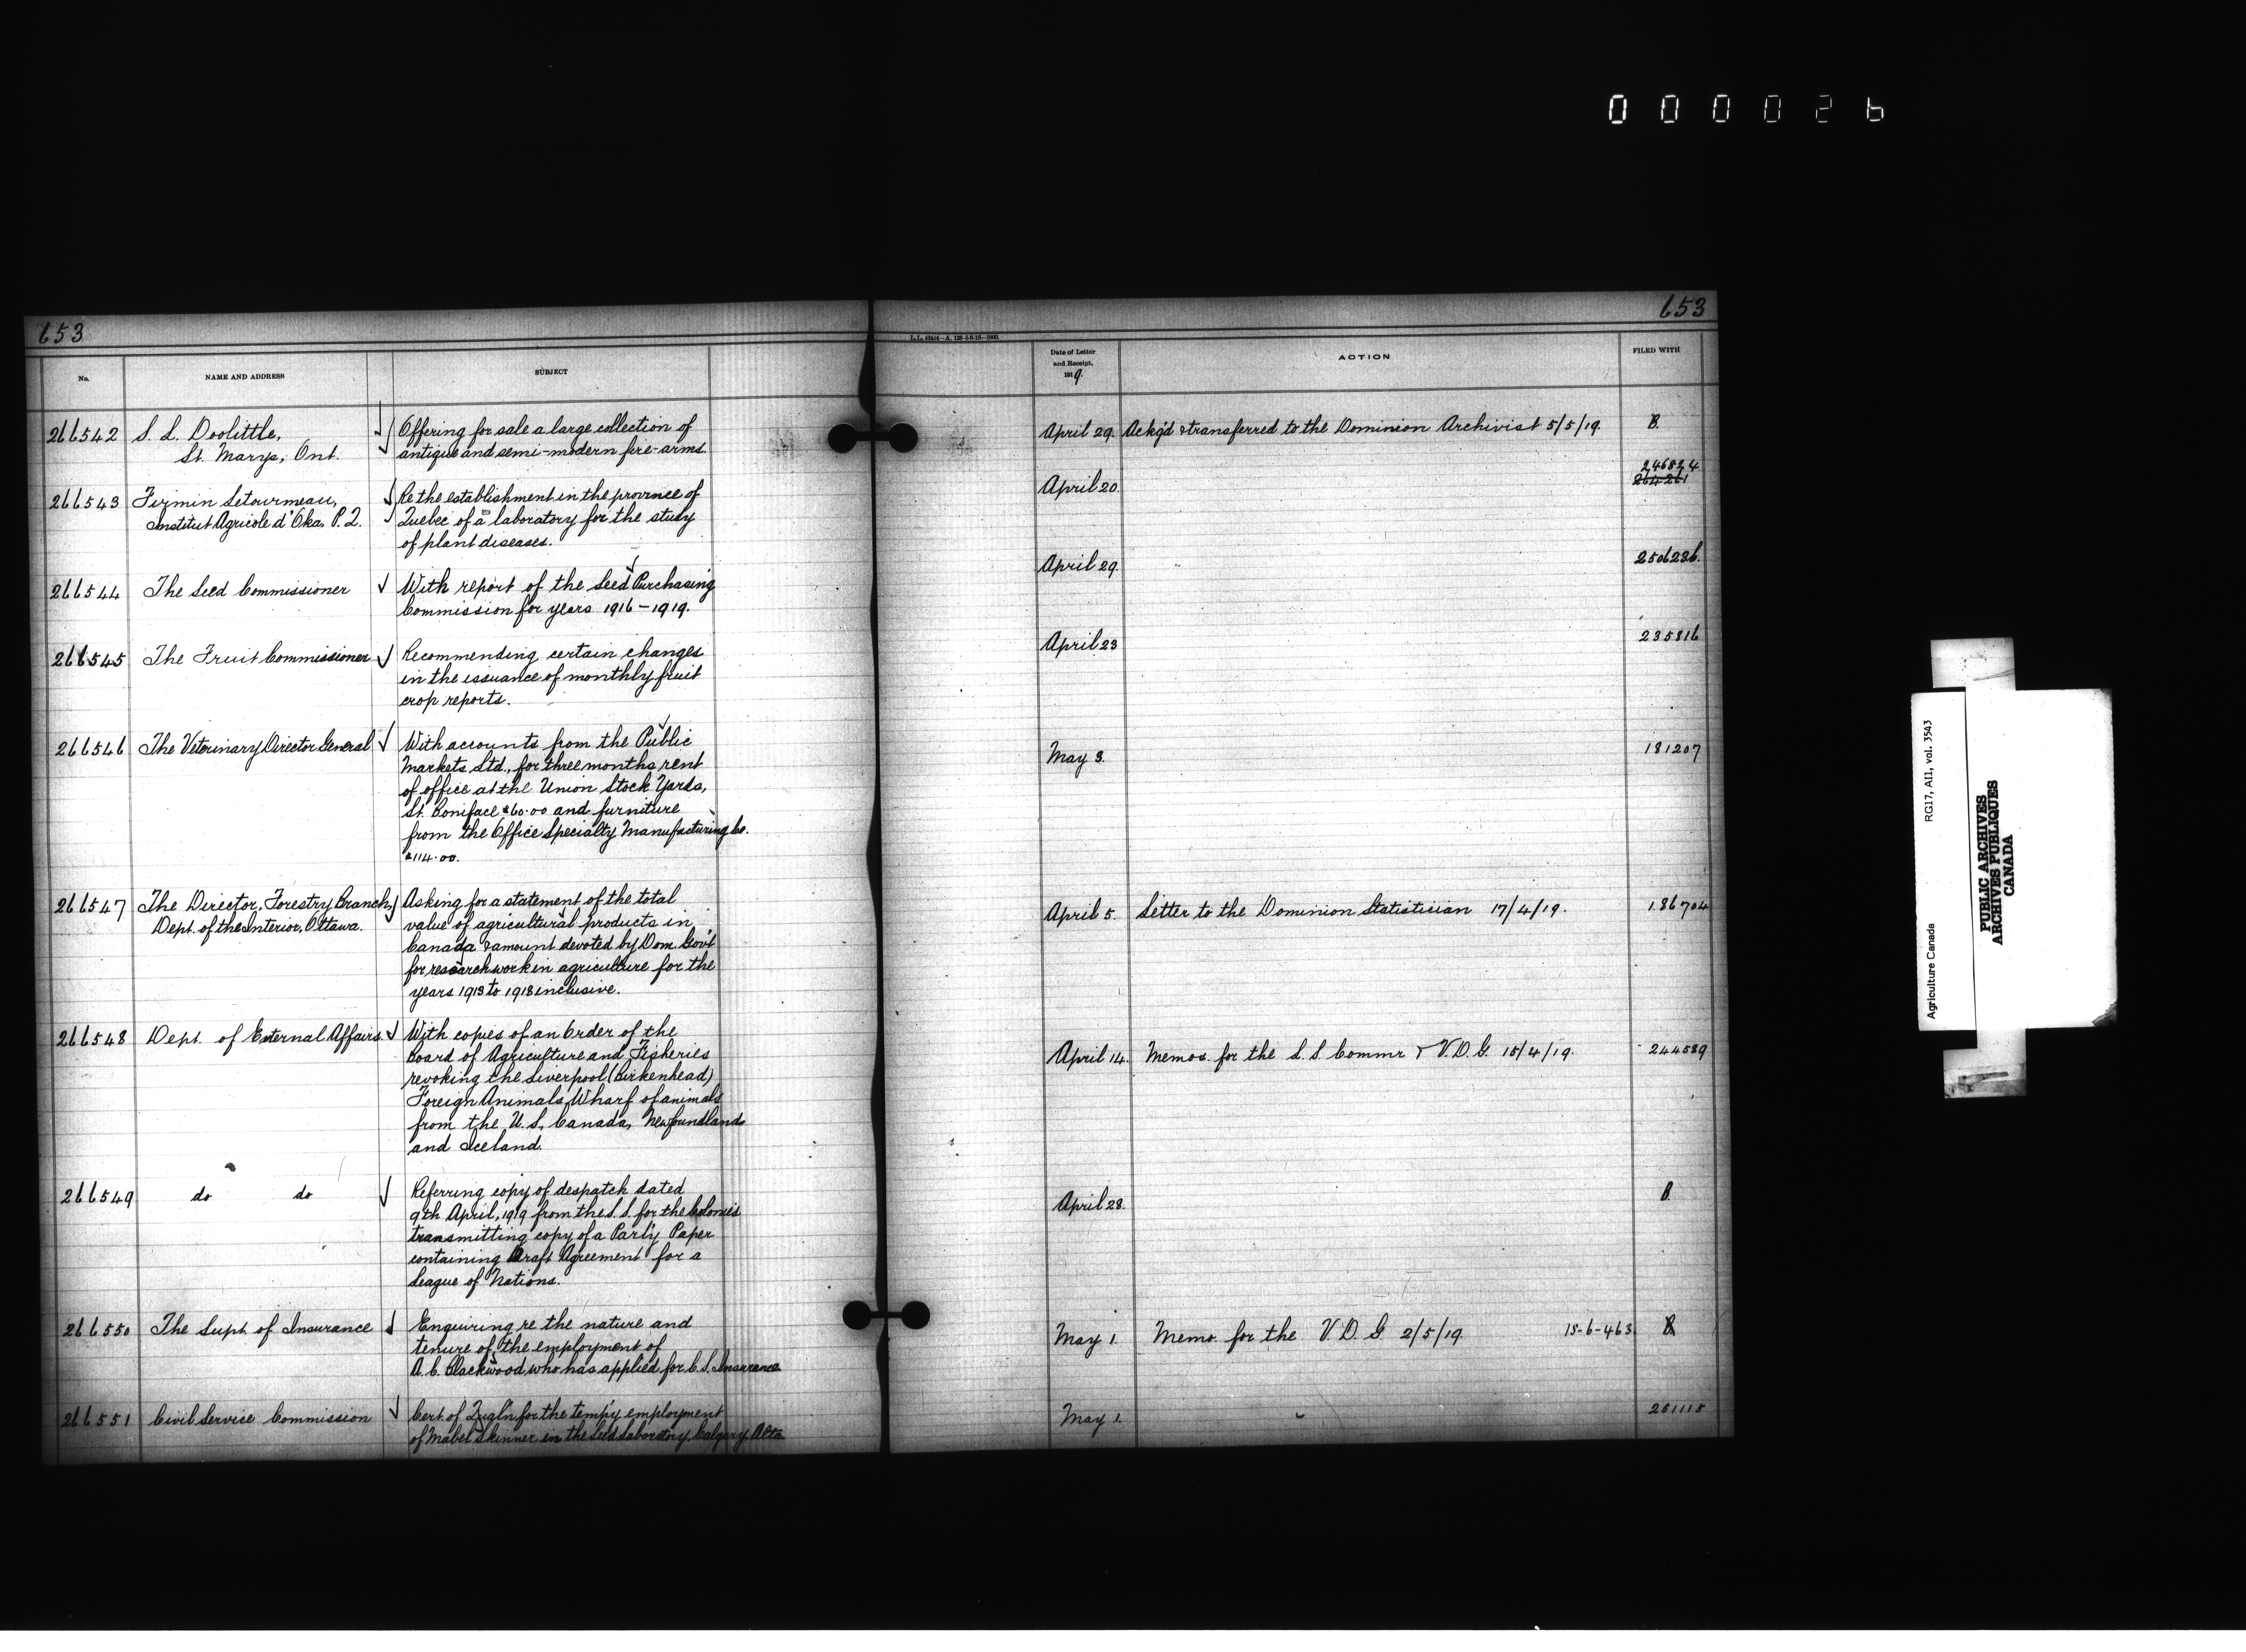 000026
653
No.
NAME AND ADDRESS
SUBJECT
266542
S. L. Doolittle,
St. Marys, Ont.
Offering for sale a large collection of
antique and semi-modern fire-arms.
266543
Firmin Letourneau,
Institut Agricole d'Oka, P.Q.
Re the establishment in the province of
Quebec of a laboratory for the study
of plant diseases.
266544
The Seed Commissioner
With report of the Seed Purchasing
Commission for years 1916-1919.
266545
The Fruit Commissioner
Recommending certain changes
in the issuance of monthly fruit
crop reports.
266546
The Veterinary Director General
With accounts from the Public
Markets Ltd., for three months rent
of office at the Union Stock Yards,
St. Boniface $60.00 and furniture
from the Office Specialty Manufacturing Co.
$114.00.
266547
The Director, Forestry Branch,
Dept. of the Interior, Ottawa.
Asking for a statement of the total
value of agricultural products in
Canada & amount devoted by Dom. Gov't
for research work in agriculture for the
years 1913 to 1918 inclusive.
266548
Dept. of External Affairs.
With copies of an Order of the
Board of Agriculture and Fisheries
revoking the Liverpool (Birkenhead)
Foreign Animals Wharf of animals
from the U.S., Canada, Newfoundland
and Iceland.
266549
do do
Referring copy of despatch dated
9th April, 1919 from the S.S. for the Colonies
transmitting copy of a Parl'y Paper
containing Draft Agreement for a
League of Nations.
266550
The Supt. of Insurance
Enquiring re the nature and
tenure of the employment of
A.C. Blackwood who has applied for C.S. Insurance
266551
Civil Service Commission
Cert. of for the temp'y employment
of Mabel Skinner in the Seed Laboratory, Calgary, Alta
653
Date of Letter
and Receipt,
1919.
ACTION
FILED WITH
April 29.
Ackg'd & transferred to the Dominion Archivist 5/5/19.
B.
April 20.
246824
264261
April 29.
250623b.
April 23
235816
May 3.
181207
April 5.
Letter to the Dominion Statistician 17/4/19.
186704
April 14.
Memos. for the L.S. Commr & V.D.G. 15/4/19.
244589
April 28.
B.
May 1.
Memo. for the V.D.G. 2/5/19.
15-6-463.
B.
May 1.
251115
Agriculture Canada
RG17, AII, vol. 3543
PUBLIC ARCHIVES
ARCHIVES PUBLIQUES
CANADA